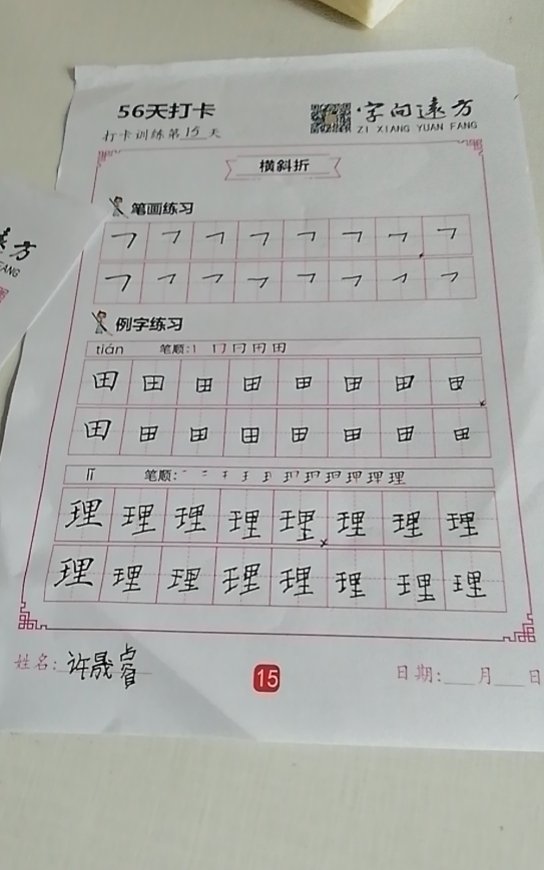 56天打卡
字向远方
打卡训练第15天
ZI XIANG YUAN FANG
横斜折
方
ANG
笔画练习
㇇ ㇇ ㇇ ㇇ ㇇ ㇇ ㇇ ㇇
㇇ ㇇ ㇇ ㇇ ㇇ ㇇ ㇇ ㇇
例字练习
tián 笔顺:丨 冂 冂 田 田
田 田 田 田 田 田 田 田
田 田 田 田 田 田 田 田
lǐ 笔顺:
理 理 理 理 理 理 理 理
理 理 理 理 理 理 理 理
姓名: 许晟睿 15 日期:___月___日